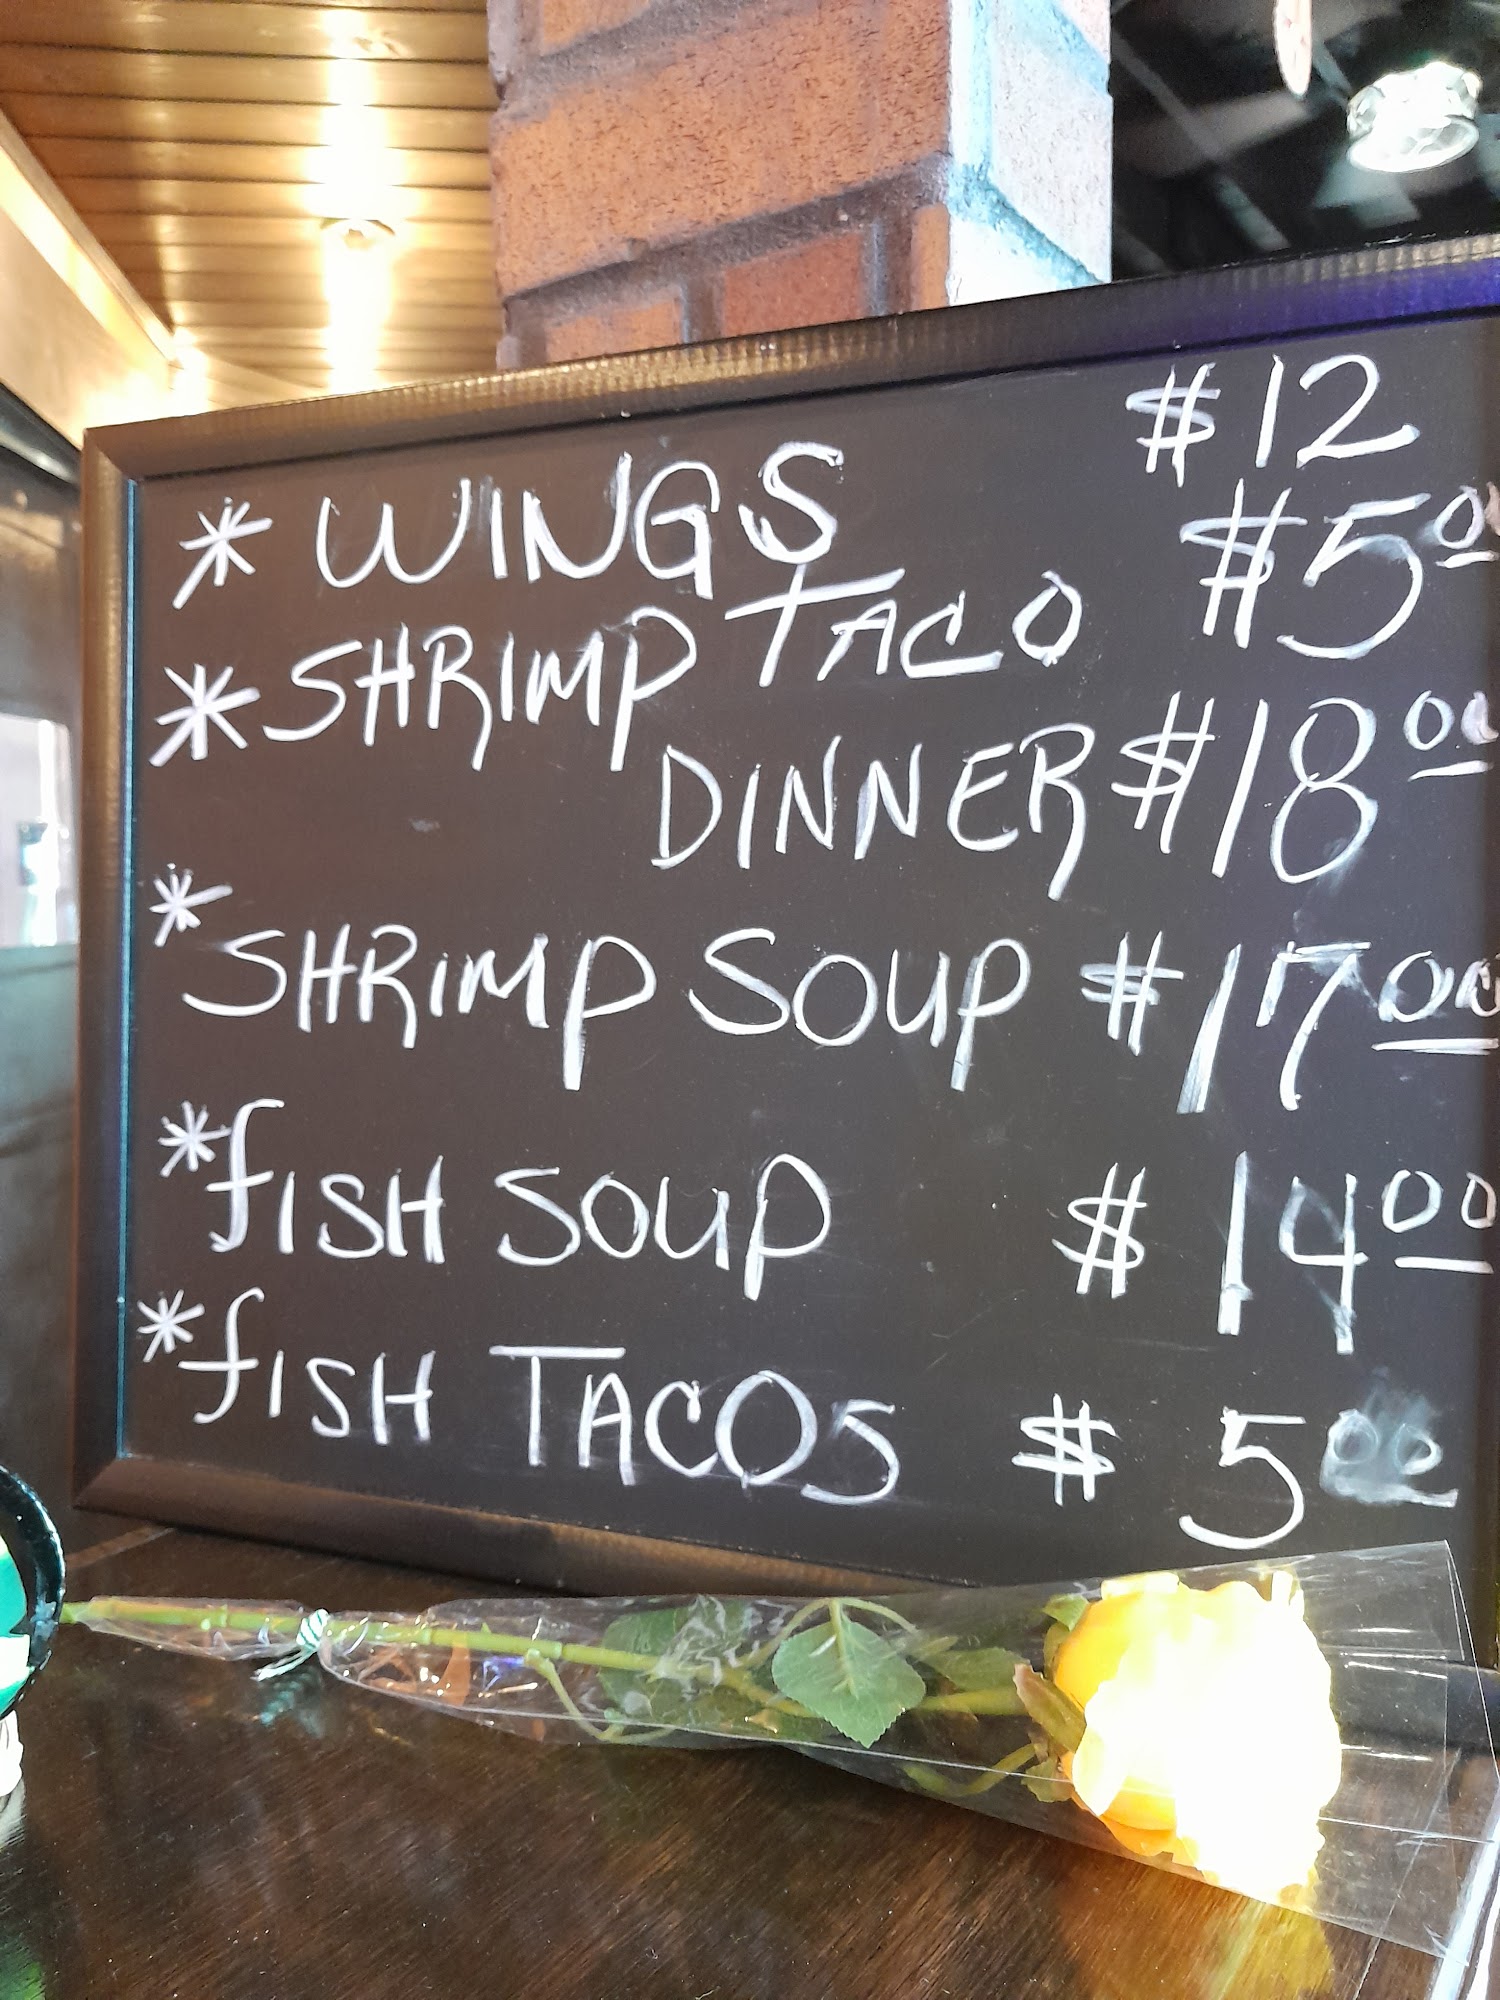 * WINGS $12
* SHRIMP TACO $5 00
DINNER $18 00
* SHRIMP SOUP $17 00
* fISH SOUP $14 00
* fISH TACOS $5 00